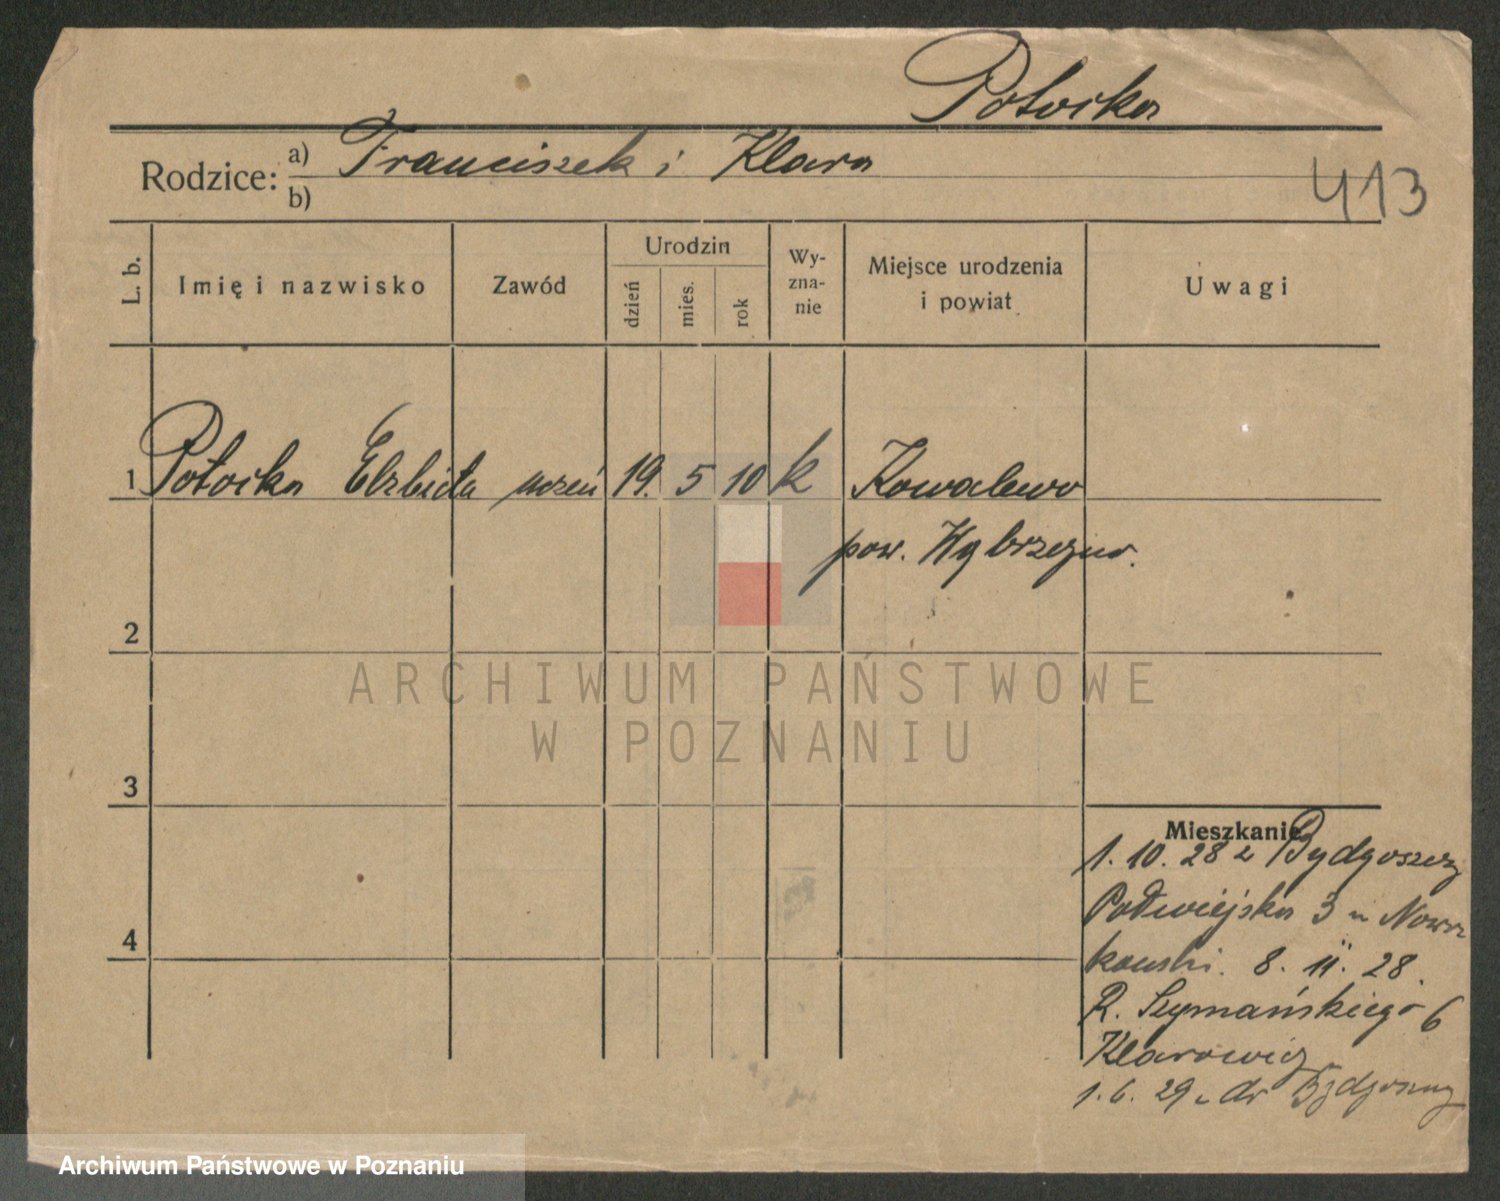 Potocka
Rodzice: a) Franciszek i Klara
b)
413
L. b. Imię i nazwisko Zawód Urodzin dzień mies. rok Wy-zna-nie Miejsce urodzenia i powiat Uwagi
1 Potocka Elżbieta uczeń 19. 5 10 k Kowalewo
pow. Wąbrzeźno.
2
3
4
Mieszkanie
1. 10. 28 z Bydgoszczy
Podwiejska 3 u Nowa
kowski. 8. 11. 28.
R. Szymańskiego 6
Klarowicz
1. 6. 29 do Bydgoszczy
ARCHIWUM PAŃSTWOWE
W POZNANIU
Archiwum Państwowe w Poznaniu